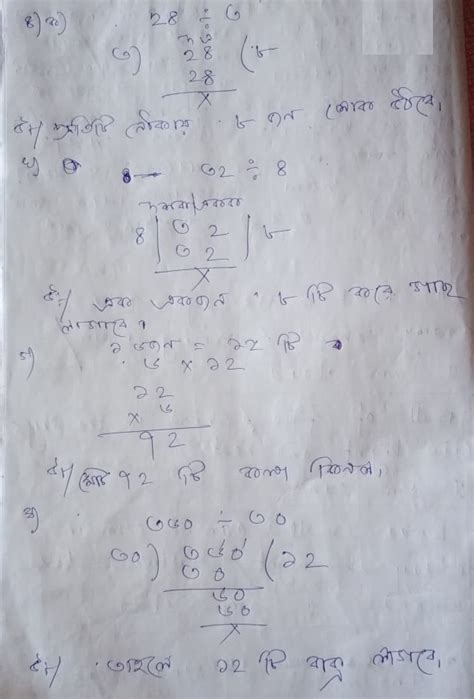 ৪) ক) ২৪ ÷ ৩
৩) ২৪ ( ৮
২৪
x
উঃ/ প্রতিটি নৌকায় ৮ জন লোক উঠবে।
খ) ৩২ ÷ ৪
দশক/একক
৪ | ৩ ২ | ৮
৩ ২
x
উঃ/ এক একজন ৮ টি করে গাছ
লাগাবে।
গ) ১ ডজন = ১২ টি
৬ x ১২
১২
x ৬
৭২
উঃ/ মোট ৭২ টি কলা কিনল।
ঘ) ৩৬০ ÷ ৩০
৩০ ) ৩৬০ ( ১২
৩০
৬০
৬০
x
উঃ/ তাহলে ১২ টি বাক্স লাগবে।